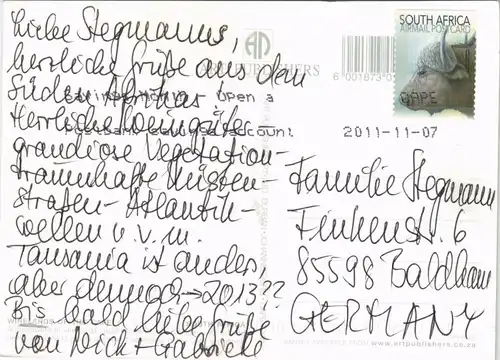 Liebe Stegmanns,
herzliche Grüße aus dem
Süden Afrikas!
Herrliche Weingüter
grandiose Vegetation-
traumhafte Küsten-
straßen-Atlantik-
wellen u.v.m.
Tansania ist anders,
aber dennoch → 2013??
Bis bald liebe Grüße
von Nick + Gabriele
SOUTH AFRICA
AIRMAIL POSTCARD
6 001873 0
Open a
account
2011-11-07
Familie Stegmann
Finkenstr. 6
85598 Baldham
GERMANY
www.artpublishers.co.za